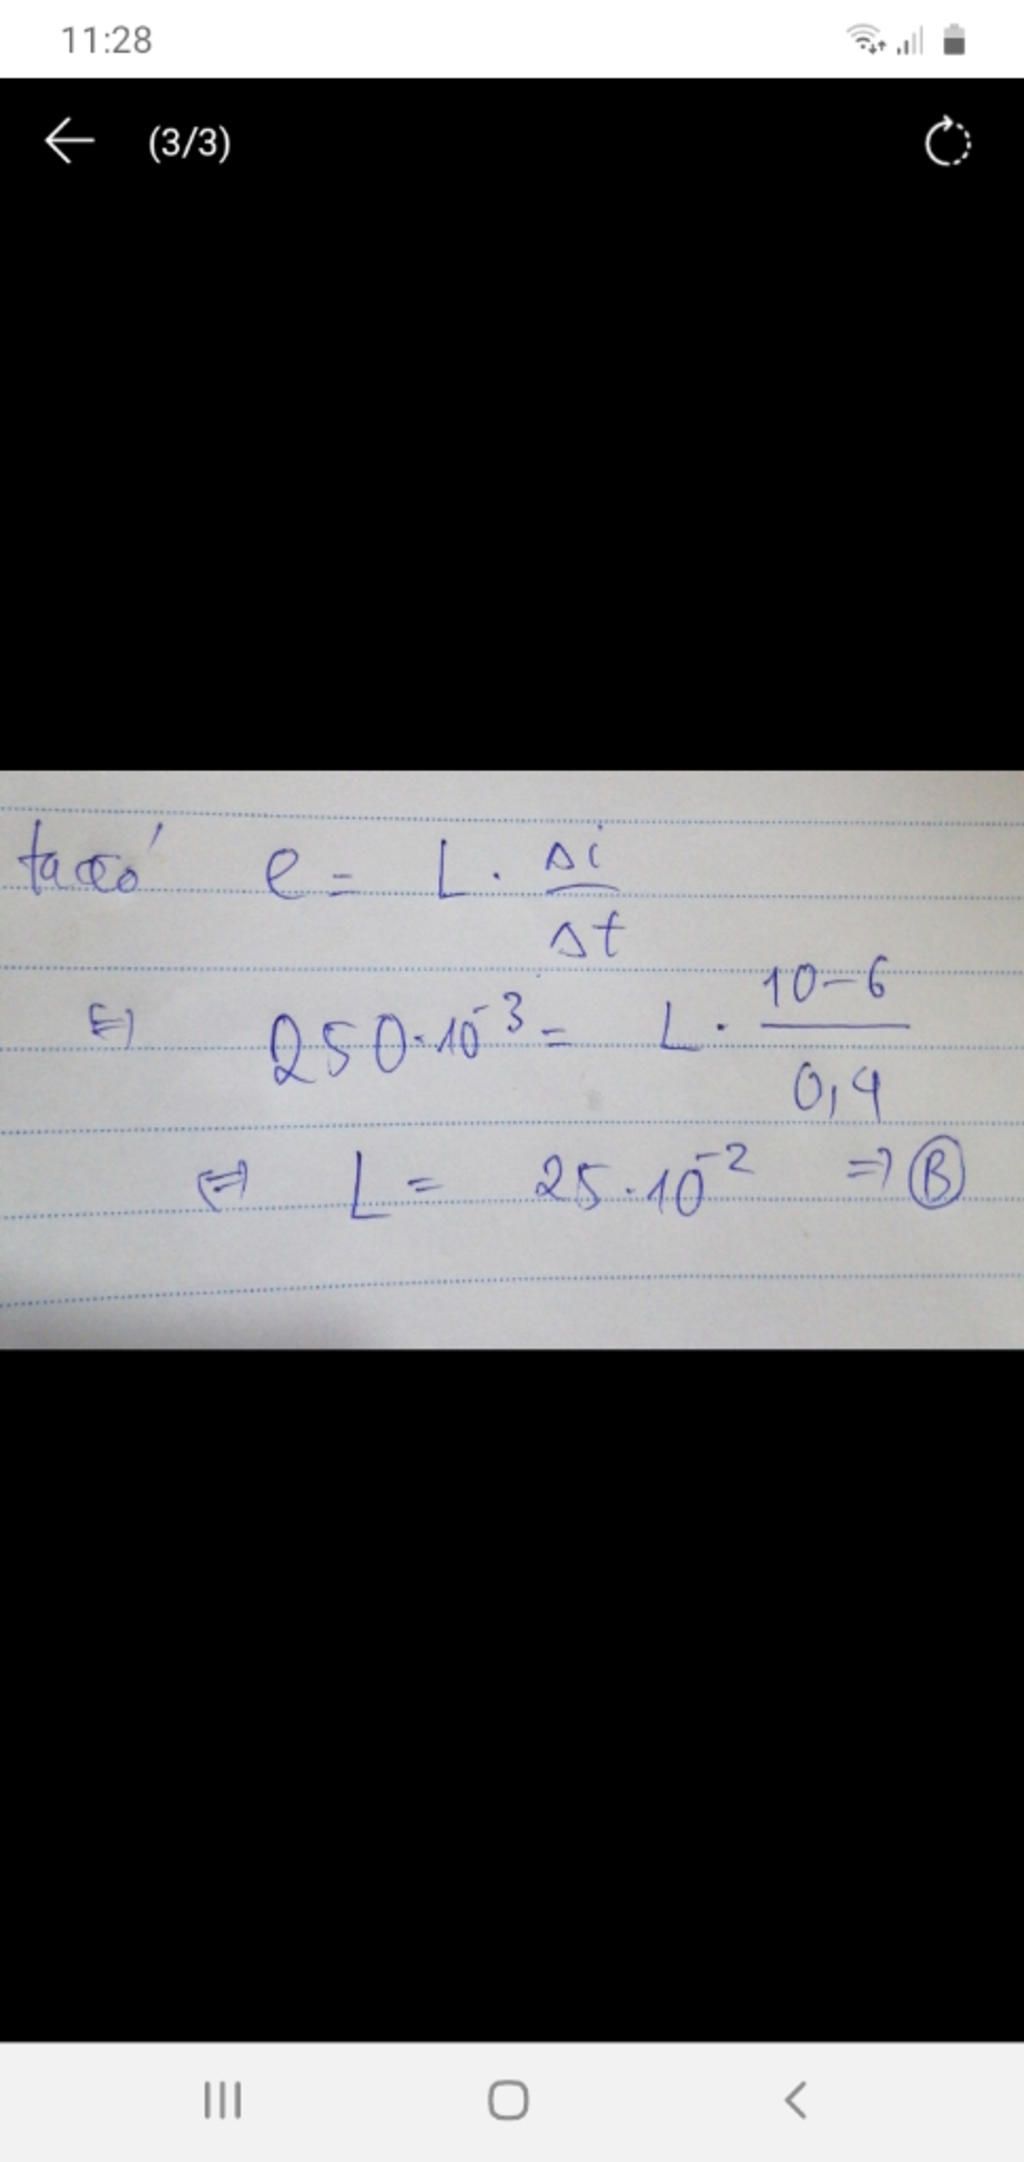 11:28
(3/3)
ta có e = L . Δi/Δt
⇔ 250.10⁻³ = L . 10-6/0,4
⇔ L = 25.10⁻² ⇒ Ⓑ